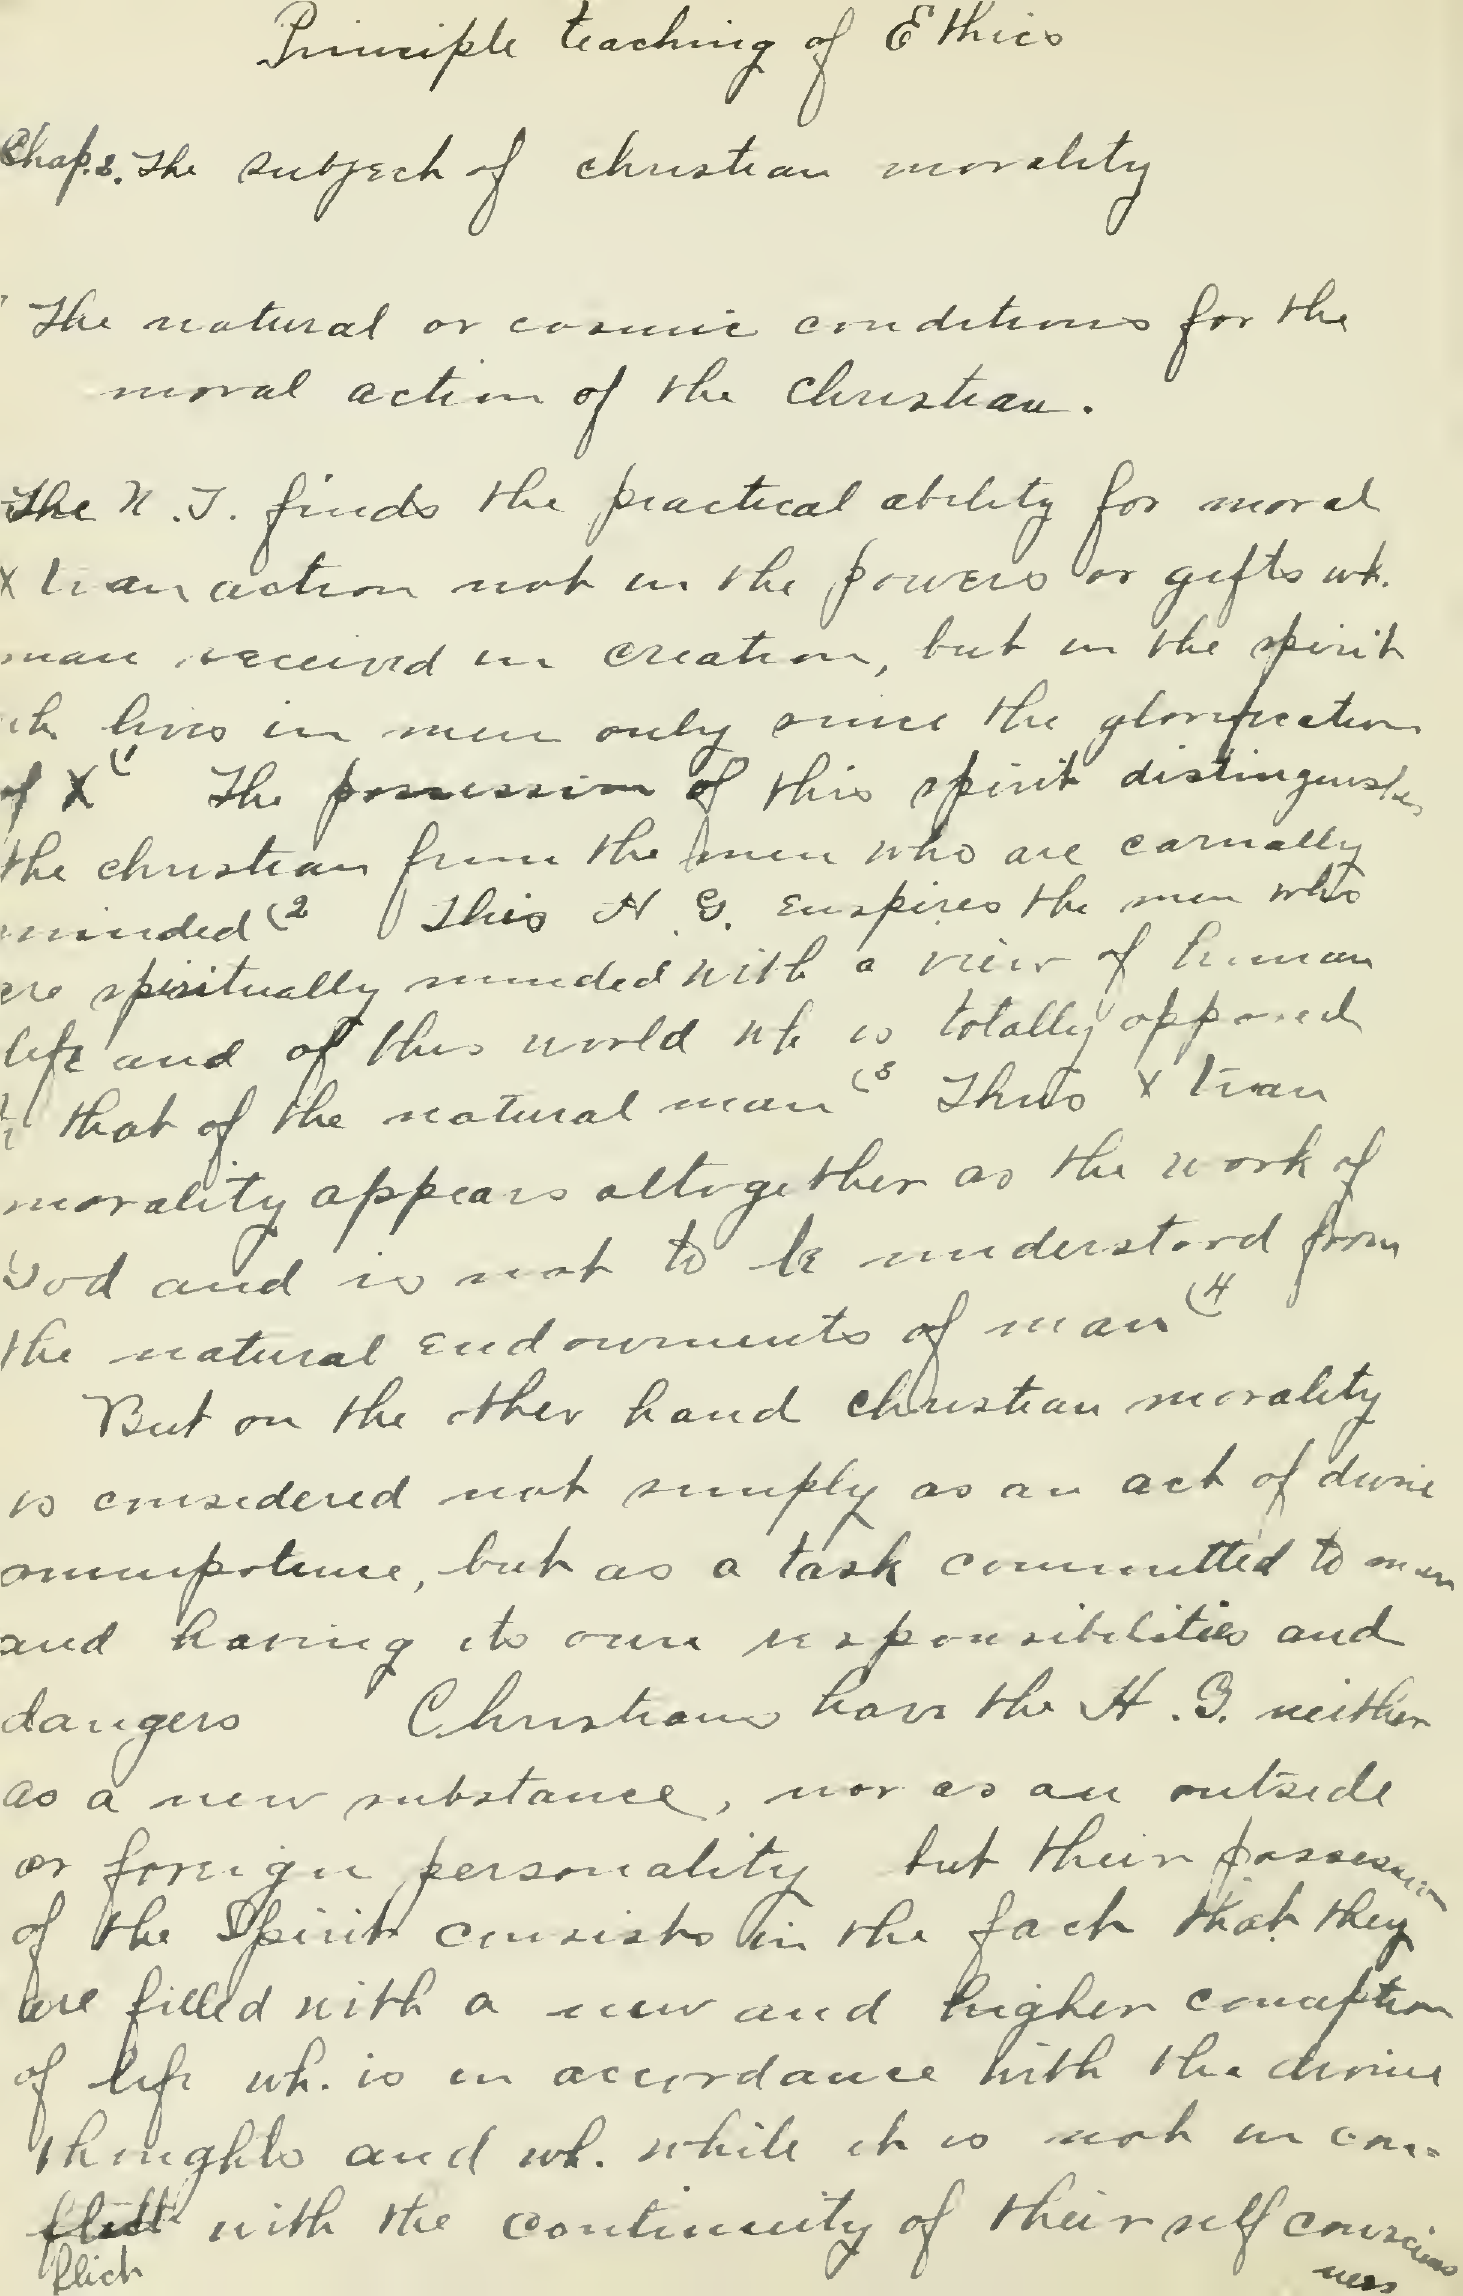 Principle teaching of Ethics
Chap. 2. The subject of christian morality
The natural or cosmic conditions for the
moral action of the Christian.
The N.T. finds the practical ability for moral
Xtian action not in the powers or gifts wh.
man received in creation, but in the spirit
wh lives in men only since the glorification
of X (1 The possession of this spirit distinguishes
the christian from the men who are carnally
minded (2 This H G. enspires the men who
are spiritually minded with a view of human
life and of this world wh is totally opposed
to that of the natural man (3 Thus Xtian
morality appears altogether as the work of
God and is not to be understood from
the natural endowments of man (4
But on the other hand christian morality
is considered not simply as an act of divine
omnipotence, but as a task committed to men
and having its own responsibilities and
dangers Christians have the H.G. neither
as a new substance, nor as an outside
or foreign personality but their possession
of the Spirit consists in the fact that they
are filled with a new and higher conception
of life wh. is in accordance with the divine
thoughts and wh. while it is not in con=
flict with the continuity of their self conscious
flict ness